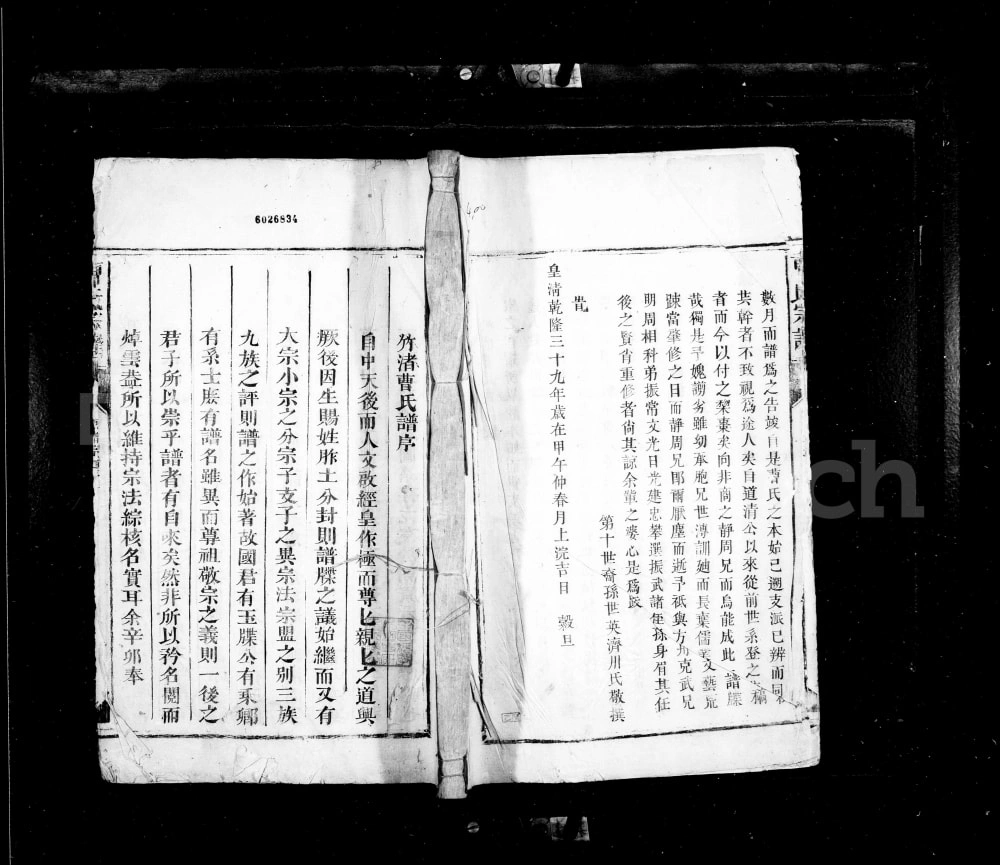 6026834
數月而譜為之告竣自是曹氏之本始已遡支派已辨而同
共幹者不致視為途人矣自道清公以來從前世系登之 稿
者而今以付之棃棗矣向非南之靜周兄而烏能成此 譜牒
哉獨是予媿謭劣雖幼承胞兄世漙訓廸而長業儒 文藝荒
踈當肇修之日而靜周兄郎爾厭塵而逝予祇與方 克武兄
明周相科弟振常文光日光建忠攀選振武諸侄孫身肩其任
後之賢肖重修者尙其諒余輩之婆心是為
旹
皇淸乾隆三十九年歲在甲午仲春月上浣吉日 穀旦
第十世裔孫世英濟川氏敬撰
竹渚曹氏譜序
自中天後而人文啟經皇作極而尊匕親匕之道興
厥後因生賜姓胙土分封則譜牒之議始繼而又有
大宗小宗之分宗子支子之異宗法宗盟之別三族
九族之評則譜之作始著故國君有玉牒公有乘鄉
有系士庶有譜名雖異而尊祖敬宗之義則一後之
君子所以崇乎譜者有自來矣然非所以矜名閥而
焯雲 所以維持宗法綜核名實耳余辛卯奉